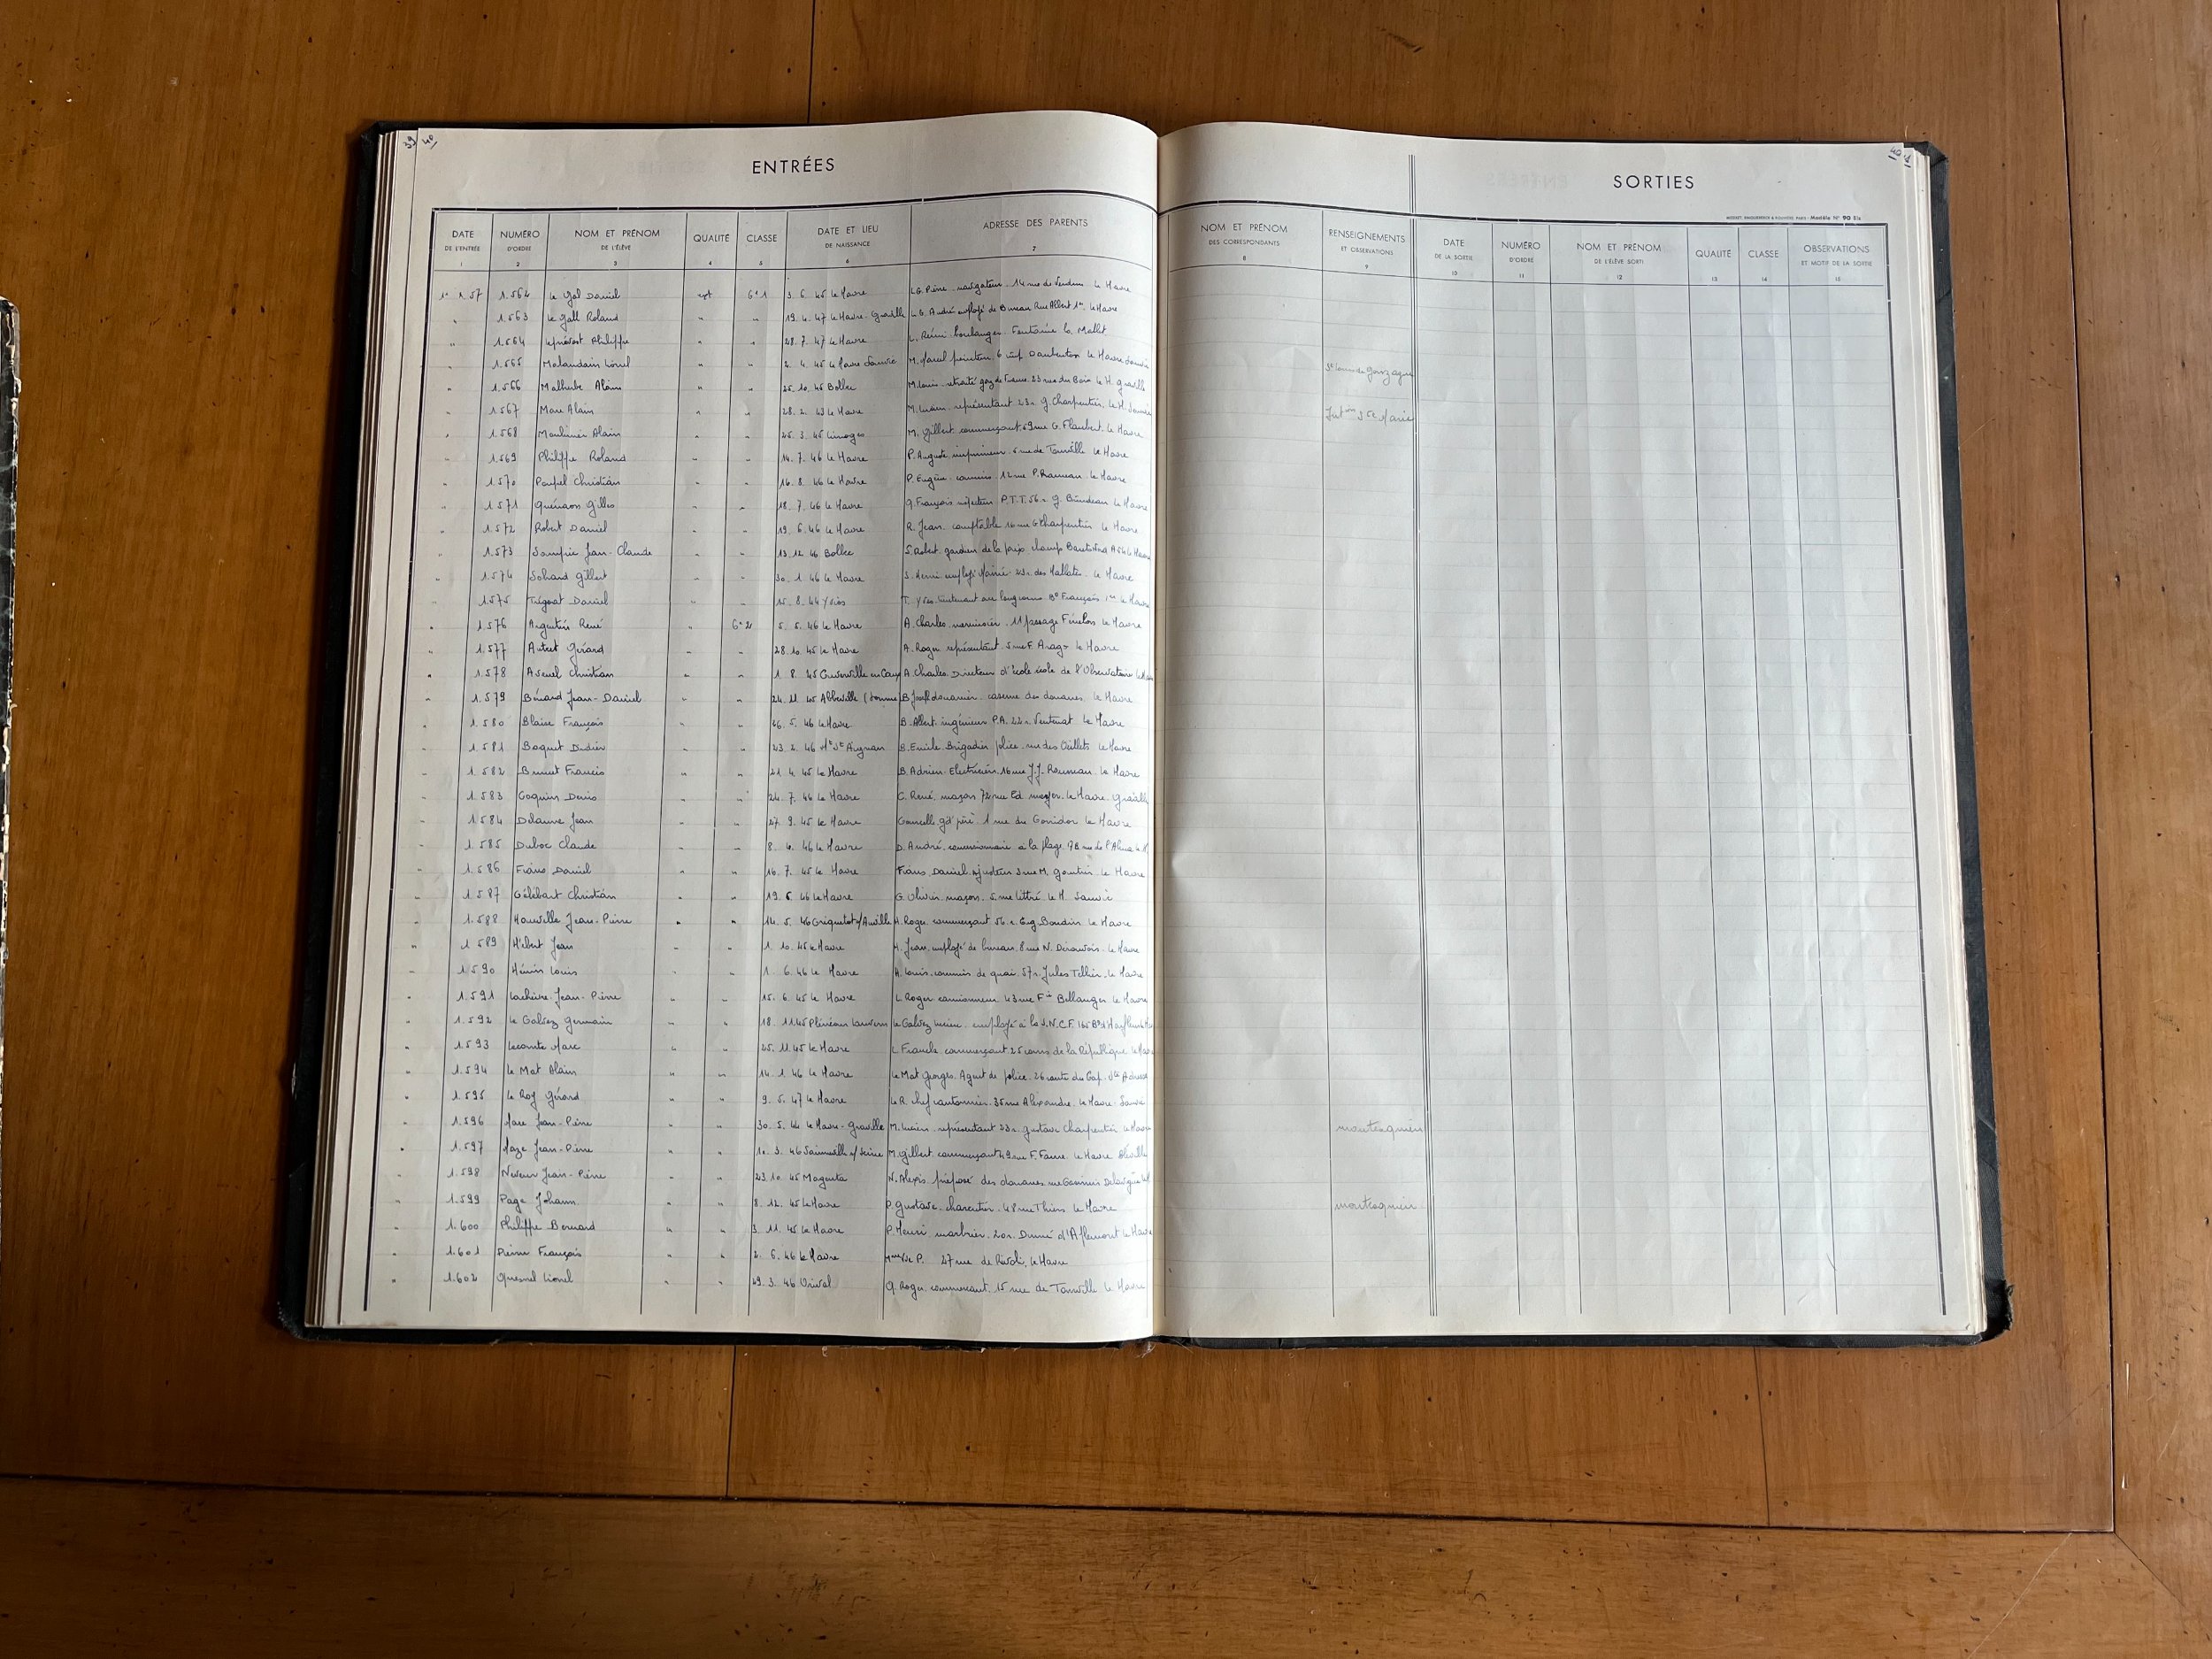 39 40
ENTRÉES
DATE DE L'ENTRÉE 1
NUMÉRO D'ORDRE 2
NOM ET PRÉNOM DE L'ÉLÈVE 3
QUALITÉ 4
CLASSE 5
DATE ET LIEU DE NAISSANCE 6
ADRESSE DES PARENTS 7
1.564 Le Gal Daniel 6e 1 3. 6. 45 Le Havre L G. Pierre navigateur. 14 rue de Verdun Le Havre
1.563 Le Gall Roland " " 19. 4. 47 Le Havre. Graville L G. André employé de Bureau Rue Albert 1er Le Havre
1.564 Leprévost Philippe " " 28. 7. 47 Le Havre L. Rémi boulanger. Fontaine la Mallet
1.565 Malandain Lionel " " 2. 4. 45 Le Havre Sanvic M. Marcel peintre 6 imp. Daubenton Le Havre Sanvic
1.566 Malherbe Alain " " 25. 10. 45 Bolbec M. Louis retraité gaz de France. 23 rue du Bois Le H. Graville
1.567 Mare Alain " " 28. 2. 43 Le Havre M. Lucien. représentant 23 r. G. Charpentier. Le H. Sanvic
1.568 Alain " " 25. 3. 45 Limoges M. Gilbert commerçant. 59 rue G. Flaubert. Le Havre
1.569 Philippe Roland " " 14. 7. 46 Le Havre P. Auguste imprimeur. 5 rue de Tourville Le Havre
1.570 Poupel Christian " " 16. 8. 46 Le Havre P. Eugène. commis. 12 rue P. Rameau. Le Havre
1.571 Gilles " " 18. 7. 46 Le Havre Q. François inspecteur P.T.T. 56 r. G. Le Havre
1.572 Robert Daniel " " 19. 6. 46 Le Havre R. Jean. comptable 16 rue G Charpentier Le Havre
1.573 Jean-Claude " " 13. 12. 46 Bolbec S. Robert. gardien de la paix champ Le Havre
1.574 Sohard Gilbert " " 30. 1. 46 Le Havre S. Henri employé Mairie. 23 r. des Hallates. Le Havre
1.575 Trégoat Daniel " " 15. 8. 44 Yvias T. Yves. lieutenant au long cours Bd François 1er Le Havre
1.576 Argentin René " 6e 2 5. 5. 46 Le Havre A. Charles. menuisier. 11 passage Fénelon Le Havre
1.577 Autret Gérard " " 28. 10. 45 Le Havre A. Roger représentant. 5 rue F. Arago Le Havre
1.578 Avenel Christian " " 1. 8. 45 Cuverville en Caux A Charles. Directeur d'école école de l'Observatoire
1.579 Bénard Jean-Daniel " " 24. 11. 45 Abbeville (Somme) B Joseph douanier. caserne des douanes. Le Havre
1.580 Blaise François " " 26. 5. 46 Le Havre B. Albert ingénieur P.A. 22 r. Ventenat Le Havre
1.581 Boquet Didier " " 23. 2. 46 Ht St Aignan B. Emile Brigadier police. rue des Œillets Le Havre
1.582 Brunet Francis " " 21. 4. 45 Le Havre B. Adrien. Electricien. 16 rue J.J. Rousseau. Le Havre
1.583 Coquin Denis " " 24. 7. 46 Le Havre C. René. maçon 72 rue Ed Le Havre. Graville
1.584 Delaune Jean " " 27. 9. 45 Le Havre gd père. 1 rue du Corridor Le Havre
1.585 Duboc Claude " " 8. 4. 46 Le Havre D. André. concessionnaire à la plage. 98 rue de l'Alma Le H.
1.586 Daniel " " 16. 7. 45 Le Havre Daniel. ajusteur 3 rue M. Le Havre
1.587 Gélébart Christian " " 19. 5. 46 Le Havre G. Olivier. maçon. 5 rue Littré Le H. Sanvic
1.588 Hauville Jean-Pierre " " 14. 5. 46 H. Roger. commerçant 56 r. Eug. Boudin Le Havre
1.589 Hébert Jean " " 1. 10. 45 Le Havre H. Jean. employé de bureau. 8 rue N. Le Havre
1.590 Hénin Louis " " 1. 6. 46 Le Havre H. Louis. commis de quai. 57 r. Jules Tellier. Le Havre
1.591 Lachèvre Jean-Pierre " " 15. 6. 45 Le Havre L Roger camionneur 43 rue Fd Bellanger Le Havre
1.592 Le Galvez Germain " " 18. 11. 45 Plénéour Lanvern Le Galvez employé à la S.N.C.F. 165 Bd d'Harfleur
1.593 Lecomte Marc " " 25. 11. 45 Le Havre L Franck commerçant 25 cours de la République. Le Havre
1.594 Le Mat Alain " " 14. 1. 46 Le Havre Le Mat Georges. Agent de police. 26 route du Cap. Ste Adresse
1.595 Le Roy Gérard " " 9. 5. 47 Le Havre Le R. chef cantonnier. 35 rue Alexandre. Le Havre. Sanvic
1.596 Mare Jean-Pierre " " 30. 5. 44 Le Havre-Graville M. Lucien. représentant 23 r. Gustave Charpentier Le Havre
1.597 Maze Jean-Pierre " " 10. 3. 46 M. Gilbert commerçant 49 rue F. Faure. Le Havre Bléville
1.598 Neveu Jean-Pierre " " 23. 10. 45 Magenta N. Alexis. préposé des douanes. rue Casimir Delavigne
1.599 Page Johann " " 8. 12. 45 Le Havre P. Gustave. charcutier. 48 rue Thiers Le Havre
1.600 Philippe Bernard " " 3. 11. 45 Le Havre P. Henri marbrier. 20 r. Dumé d'Aplemont Le Havre
1.601 François " " 2. 6. 46 Le Havre Mme Vve P. 27 rue de Rivoli, Le Havre
1.602 Quesnel Lionel " " 29. 3. 46 Orival Q. Roger. commerçant. 15 rue de Tourville Le Havre
NOM ET PRÉNOM DES CORRESPONDANTS 8
RENSEIGNEMENTS ET OBSERVATIONS 9
St Louis de Gonzague
Instion J. Ste Marie
montesquieu
montesquieu
40
SORTIES
Modèle N° 90 Bis
DATE DE LA SORTIE 10
NUMÉRO D'ORDRE 11
NOM ET PRÉNOM DE L'ÉLÈVE SORTI 12
QUALITÉ 13
CLASSE 14
OBSERVATIONS ET MOTIF DE LA SORTIE 15